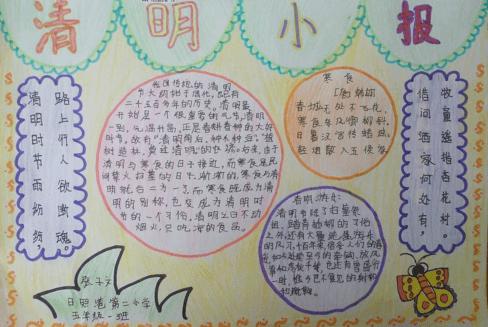 清明小报
清明时节雨纷纷，
路上行人欲断魂。
我国传统的清明
节大约始于周代，已有
二千五百多年的历史。清明最
开始是一个很重要的节气，清明
一到，气温升高，正是春耕春种的大好
时节，故有“清明前后，种瓜种豆”。“植
树造林，莫过清明”的农谚。后来，由于
清明与寒食的日子接近，而寒食是民
间禁火扫墓的日子，渐渐的，寒食与清
明就合二为一了，而寒食既成为清明
的别称，也变成为清明时
节的一个习俗，清明之日不动
烟火，只吃凉的食品。
寒食
春城无处不飞花，
寒食东风御柳斜。
日暮汉宫传蜡烛，
轻烟散入五侯家
清明游乐：
清明节除了扫墓祭
祖、踏青
借问酒家何处有，
牧童遥指杏花村。
日照港第二小学
五年级一班